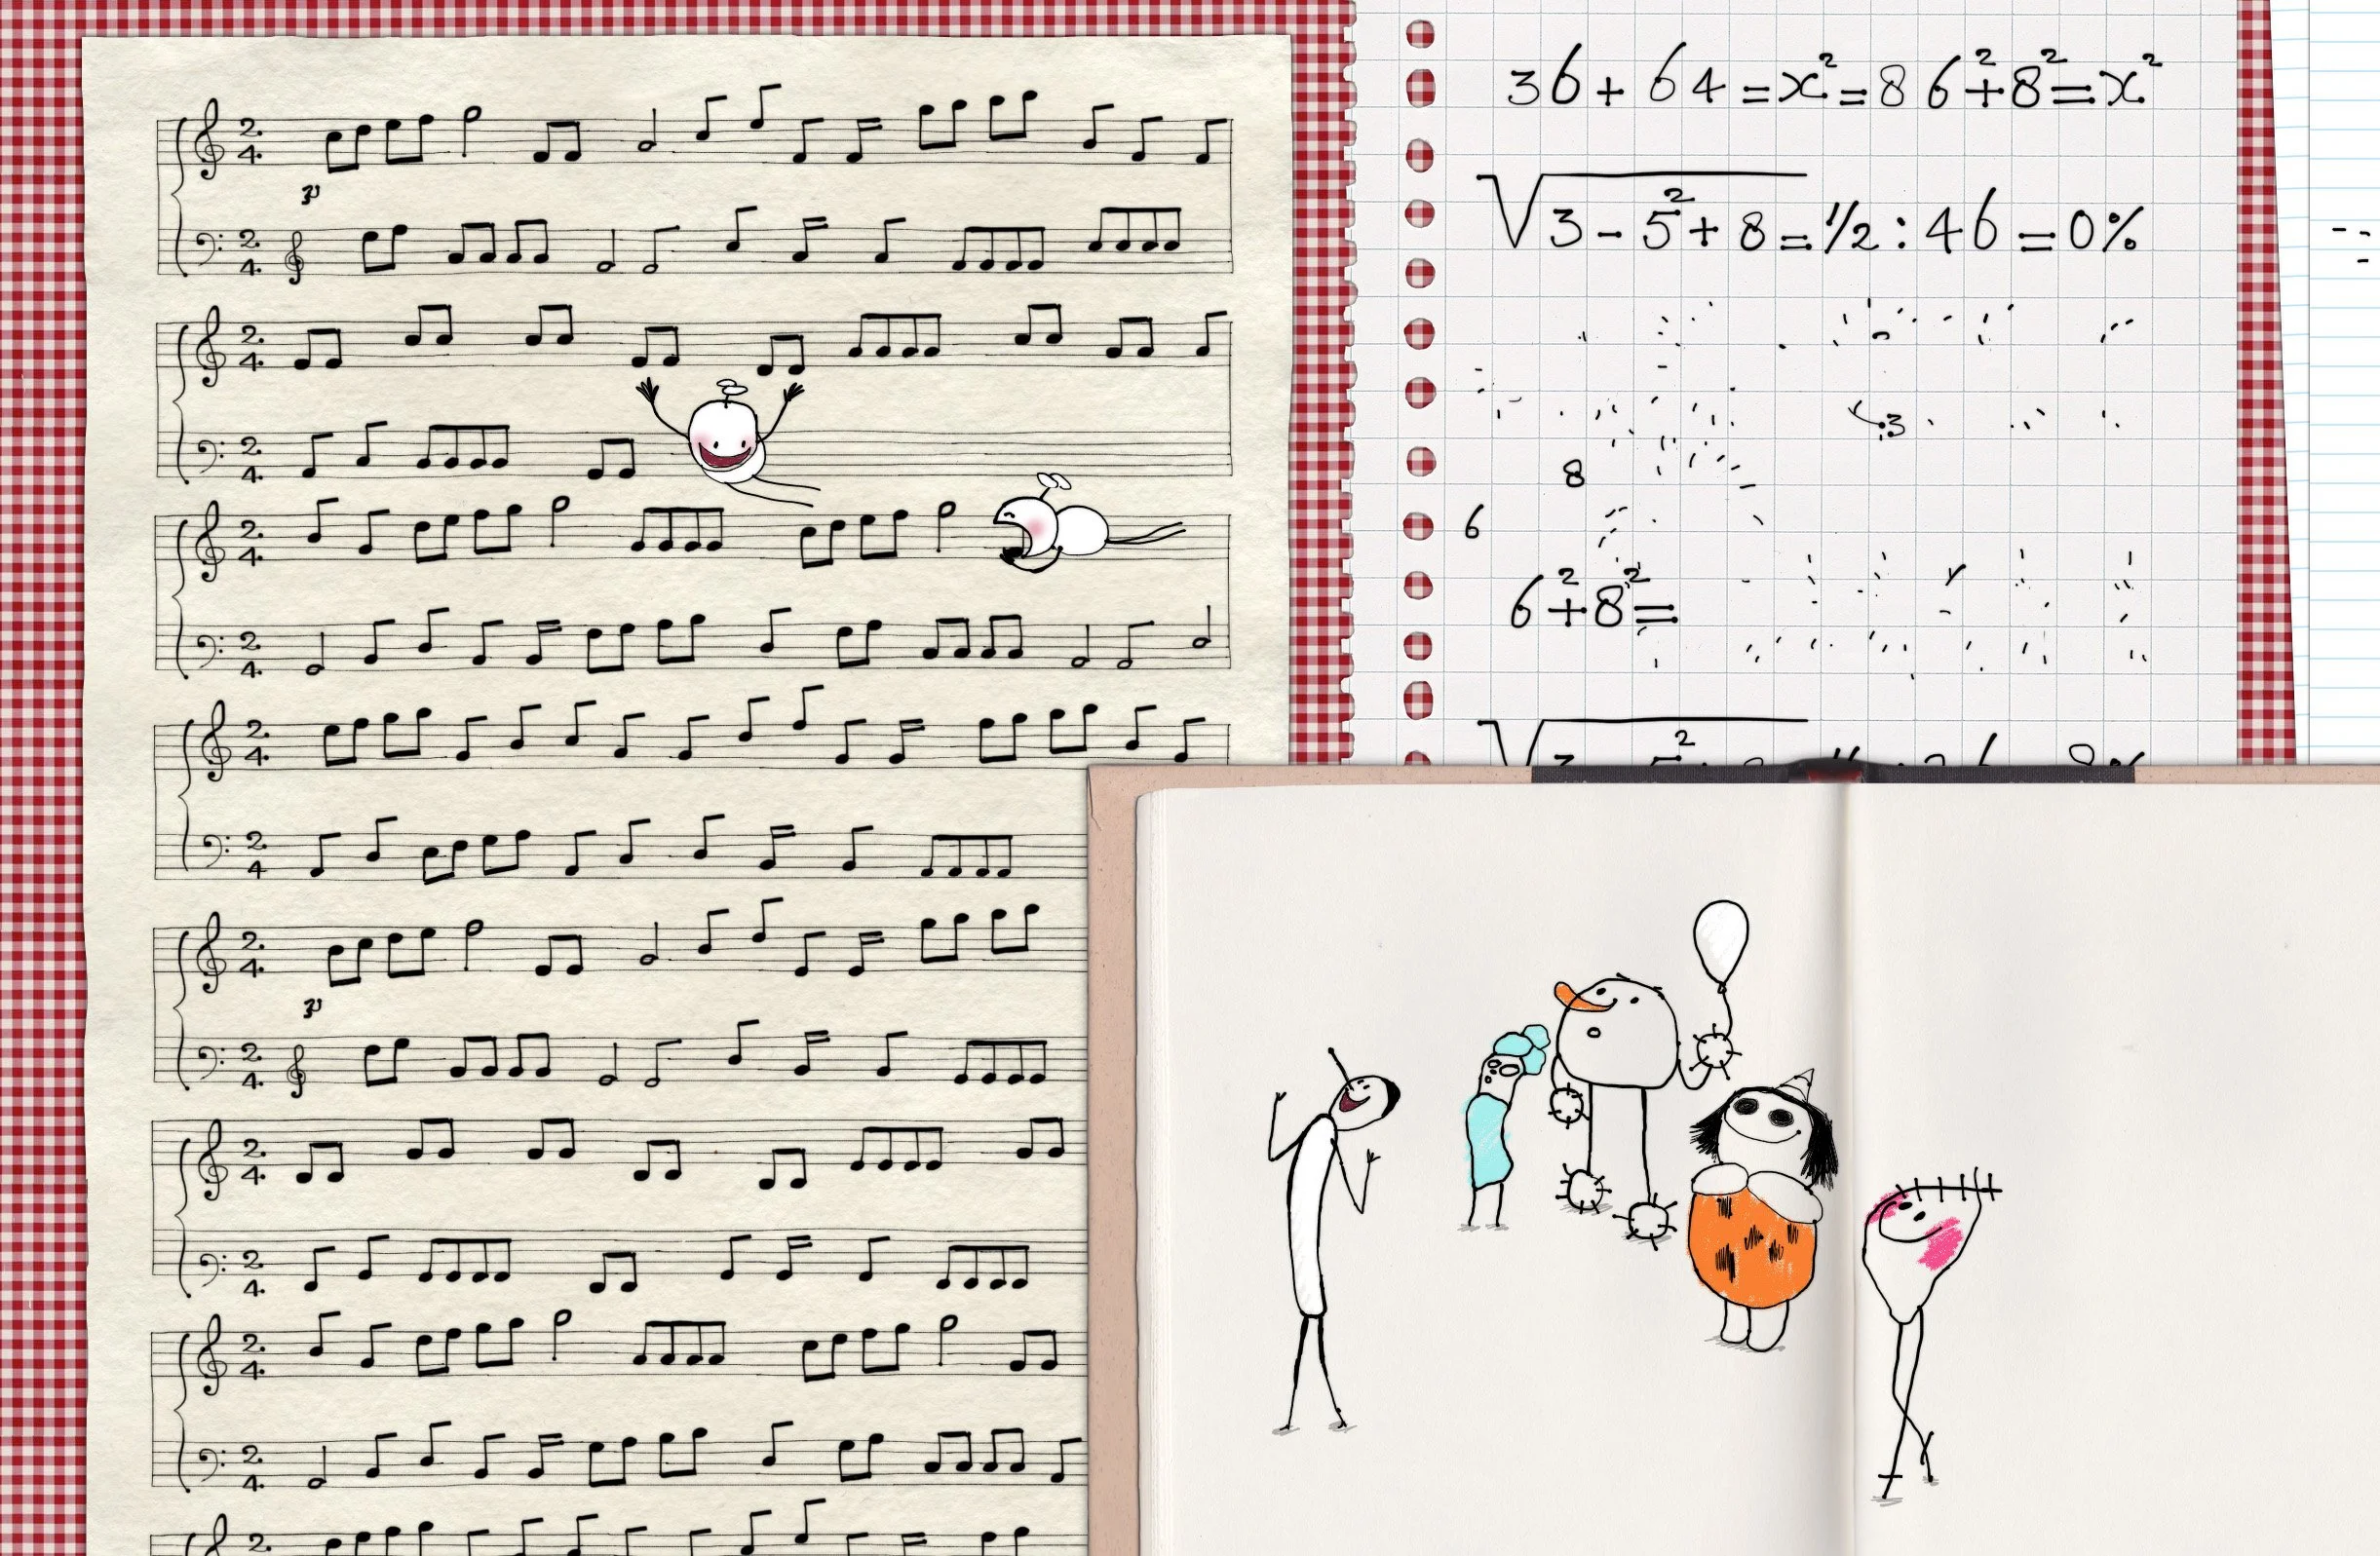 36+64=x²=86²+8²=x²
√3-5²+8=½:46=0%
3
8
6
6²+8²=